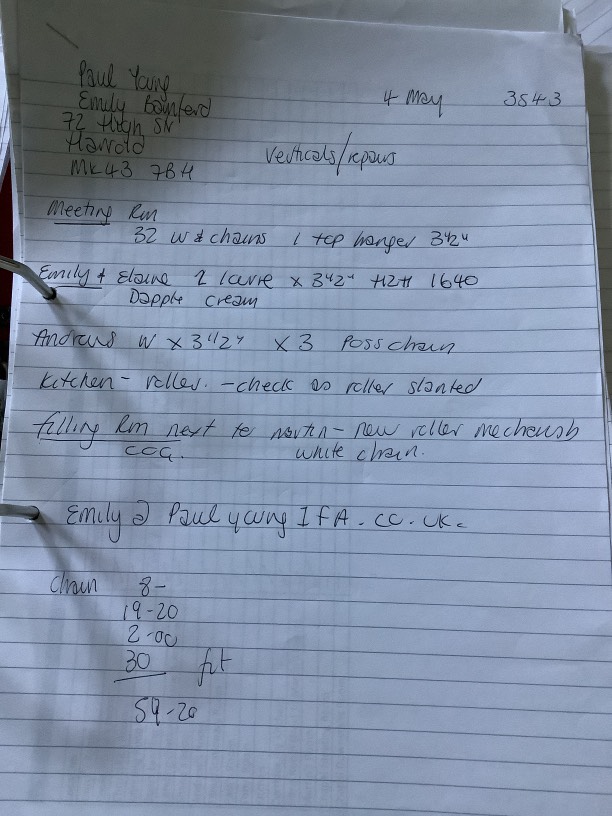 Paul Young
Emily Bamferd
4 May 3543
72 High St
Harrold
Verticals/repairs
MK43 7BH
Meeting Rm
32 W & chains 1 top hanger 3½"
Emily + Elaine 2 louvre x 3½" 1640
Dapple cream
Andrews W x 3½" x 3 Poss chain
Kitchen - roller. - check as roller slanted
filling Rm next to martin - new roller
COG. white chain.
Emily @ Paul young IFA. co. uk.
Chain 8-
19-20
2-00
30 fit
59-20